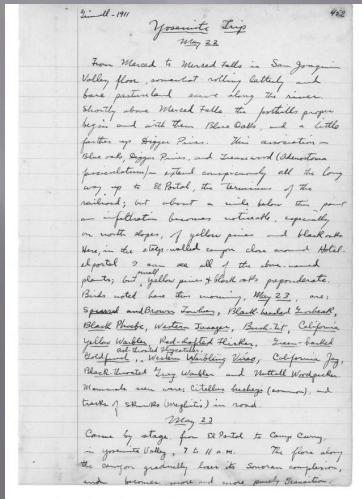 Grinnell - 1911
452
Yosemite Trip
May 22
From Merced to Merced Falls is San Joaquin
Valley floor, somewhat rolling latterly and
bare pastureland save along the river.
Shortly above Merced Falls the foothills proper
begin and with them Blue Oaks, and a little
farther up Digger Pines. This association -
Blue oaks, Digger Pines, and Greasewood (Adenostoma
fasciculatum) - extend conspicuously all the long
way up to El Portal, the terminus of the
railroad; but about a mile below this point
an infiltration becomes noticeable, especially
on north slopes, of yellow pines and black oaks
Here, in the steep-walled canyon close around Hotel-
elportal I can see all of the above-named
plants; but small yellow pines & black oaks preponderate.
Birds noted here this morning, May 23, are:
Spurred and Brown Towhees, Black-headed Grosbeak,
Black Phoebe, Western Tanager, Bush-Tit, California
Yellow Warbler, Red-shafted Flicker, Green-backed
Goldfinch, Ash-throated Flycatcher, Western Warbling Vireo, California Jay,
Black-throated Gray Warbler and Nuttall Woodpecker.
Mammals seen were: Citellus beecheyi (common), and
tracks of skunks (mephitis) in road.
May 23
Came by stage from El Portal to Camp Curry,
in Yosemite Valley, 7 to 11 a.m. The flora along
the canyon gradually loses its Sonoran complexion,
and becomes more and more purely Transition.